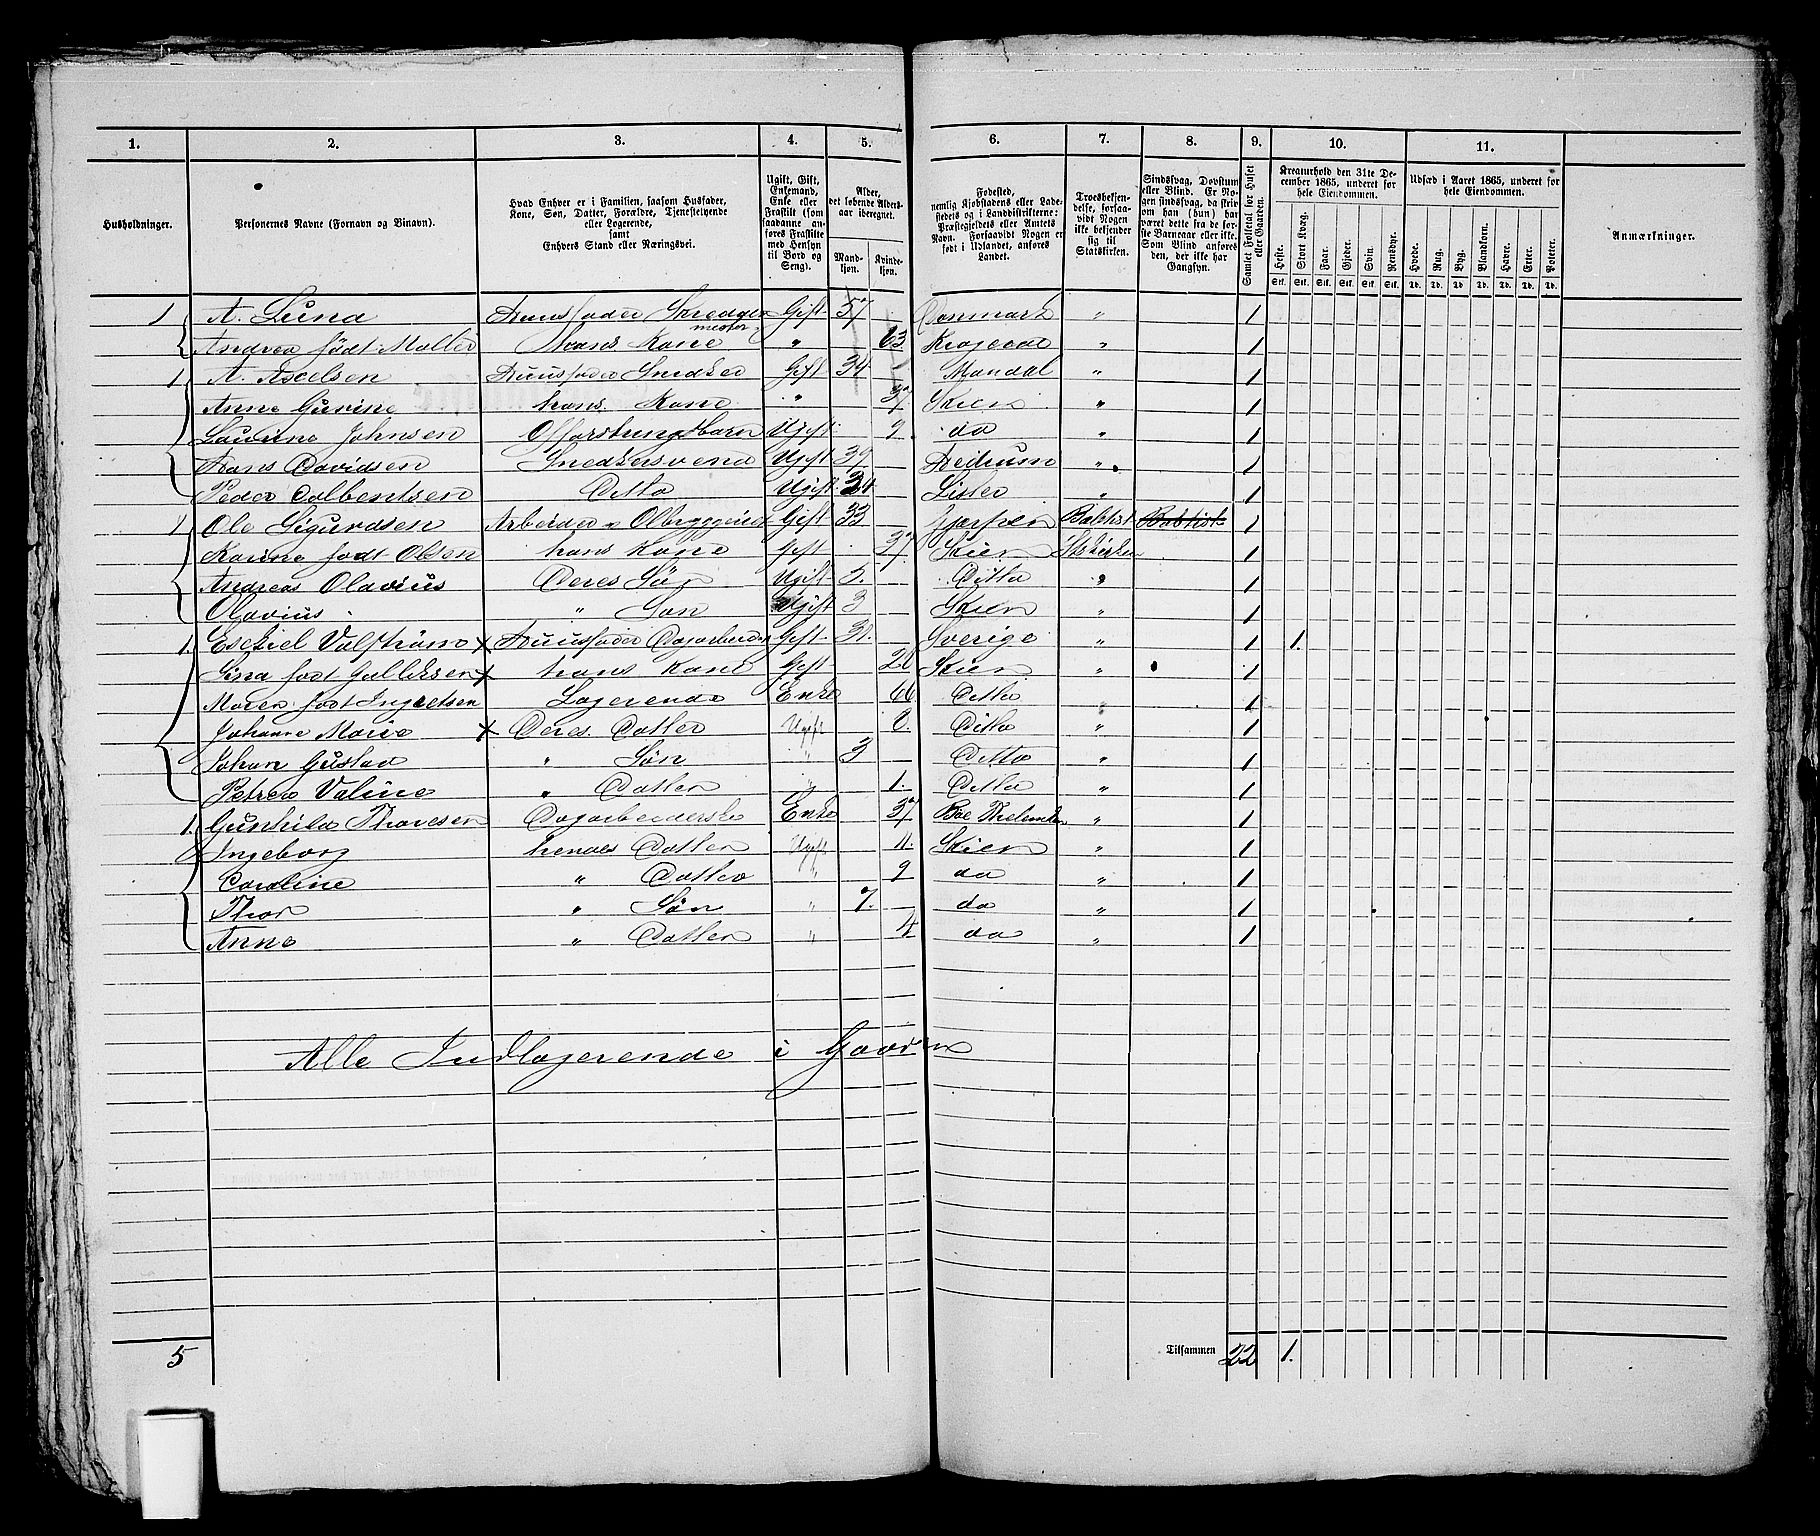 1. 2. 3. 4. 5. 6. 7. 8. 9. 10. 11.
Husholdninger.
Personernes Navne (Fornavn og Binavn).
Hvad Enhver er i Familien, saasom Husfader,
Kone, Søn, Datter, Forældre, Tjenestetyende
eller Logerende,
samt
Enhvers Stand eller Næringsvei.
Ugift, Gift,
Enkemand,
Enke eller
Fraskilt (som
saadanne an-
føres Fraskilte
med Hensyn
til Bord og
Seng).
Alder,
det løbende Alders-
aar iberegnet.
Mand-
kjøn.
Kvinde-
kjøn.
Fødested,
nemlig Kjøbstadens eller Lade-
stedets og i Landdistrikterne:
Præstegjeldets eller Amtets
Navn. Forsaavidt Nogen er
født i Udlandet, anføres
Landet.
Troesbekjen-
delse, forsaa-
vidt Nogen
ikke bekjender
sig til
Statskirken.
Sindssvag, Døvstum
eller Blind. Er No-
gen sindssvag, da skriv
om han (hun) har
været dette fra de før-
ste Barneaar eller ikke.
Som Blind anføres
den, der ikke har
Gangsyn.
Samlet Folketal for Huset
eller Gaarden.
Kreaturhold den 31te De-
cember 1865, underet for
hele Eiendommen.
Heste. Stort Kvæg. Faar. Gjeder. Svin. Rensdyr.
Stk. Stk. Stk. Stk. Stk. Stk.
Udsæd i Aaret 1865, underet for
hele Eiendommen.
Hvede. Rug. Byg. Blandkorn. Havre. Erter. Poteter.
Td. Td. Td. Td. Td. Td. Td.
Anmærkninger.
1 A. Lund Huusfader Skrædder mester Gift 57 Danmark " 1
Andrea født Møller hans Kone " 63 Krageroe " 1
1 A. Axelsen Huusfader Snedker Gift 34 Mandal " 1
Anne Gurine hans Kone " 37 Skien " 1
Laurine Johnsen Opfostringsbarn Ugift 9 do " 1
Hans Davidsen Snedkersvend Ugift 39 Hedrum " 1
Peder Dalbentsen Ditto Ugift 24 Lister " 1
1 Ole Sigurdsen Arbeider Ølbryggeriet Gift 33 Gjerpen Babtist Babtist 1
Karine født Olsen hans Kone Gift 37 Skien Statskirken 1
Andreas Olavius Deres Søn Ugift 5. Ditto " 1
Olavius " Søn Ugift 3 Skien " 1
1. Esekiel Valstrøm x Huusfader Dagarbeider Gift 31. Sverige " 1 1.
Sina født Gulliksen x hans Kone Gift 28 Skien " 1
Maren født Ingvetsen Logerende Enke 66 Ditto " 1
Johanne Marie x Deres Datter Ugift 8. Ditto " 1
Johan Gustav " Søn " 3 Ditto " 1
Petrea Valine " Datter " 1. Ditto " 1
1. Gunhild Thovesen Dagarbeiderske Enke 37 Bøe Thelemarken " 1
Ingeborg hendes Datter Ugift 11. Skien " 1
Caroline " Datter " 9 do " 1
Thor " Søn " 7. do " 1
Anne " Datter " 4 do " 1
Alle Indlogerende i Gaarden
5 Tilsammen 22 1.